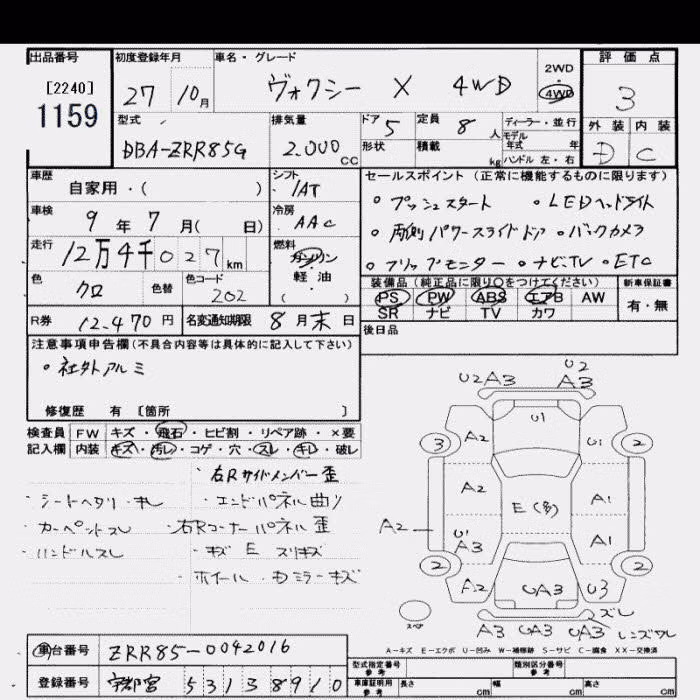 出品番号
[2240]
1159
初度登録年月
27 10月
車名・グレード
ヴォクシー X 4WD
2WD
・
4WD
評価点
3
外装 内装
D C
型式
DBA-ZRR85G
排気量
2.000 CC
ドア 5
形状
定員 8 人
積載 kg
ディーラー・並行
モデル
年式 年
ハンドル 左・右
車歴
自家用・( )
シフト
IAT
車検
9 年 7 月( 日)
冷房
AAC
走行
12万4千027km
燃料
ガソリン
軽・油
( )
色
クロ
色替
色コード
202
R券 12.470円
名変通知期限 8月末日
セールスポイント (正常に機能するものに限ります)
・プッシュスタート ・LEDヘッドライト
・両側パワースライドドア ・バックカメラ
・フリップモニター ・ナビ.TV ・ETC
装備品(純正品に限り○をつけてください)
PS PW ABS エアB AW
SR ナビ TV カワ
新車保証書
有・無
後日品
注意事項申告欄(不具合内容等は具体的に記入して下さい)
・社外アルミ
修復歴 有 [箇所 ]
検査員 FW キズ・飛石・ヒビ割・リペア跡・×要
記入欄 内装 キズ・汚レ・コゲ・穴・スレ・キレ・破レ
右Rサイドメンバー歪
・シートヘタリ・キレ ・エンドパネル曲り
・カーペットスレ ・右Rコーナーパネル歪
・ハンドルスレ ・キズ E スリキズ
・ホイール・ドミラーキズ
U2A3 U2
A3
U1
3 A2 U1 2
A2 E(多) A1
A2 U1
A3 A1
2 A2 UA3 U3 2
スペア
ズレ
A3 UA3 UA3 レンズワレ
A-キズ E-エクボ U-凹み W-補修跡 S-サビ C-腐食 XX-交換済
車台番号 ZRR85-0042016
登録番号 宇都宮 531 3 8910
型式指定番号
参考
類別区分番号
参考
車庫証明用
参考
長さ cm 幅 cm 高さ cm